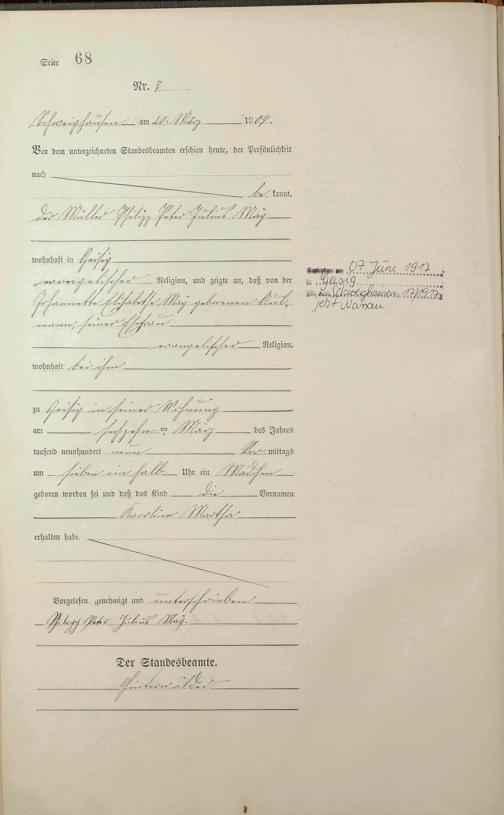 Seite 68
Nr. 7
Schweighausen am 20. März 1909.
Vor dem unterzeichneten Standesbeamten erschien heute, der Persönlichkeit
nach
be kannt,
der Müller Philipp Peter Julius May
wohnhaft in Geisig
evangelischer Religion, und zeigte an, daß von der
Johannette Elisabeth May geborenen
mann, seiner Ehefrau
evangelischer Religion,
wohnhaft bei ihm
zu Geisig in seiner Wohnung
am sechzehn ten März des Jahres
tausend neunhundert neun Vor mittags
um sieben ein halb Uhr ein Mädchen
geboren worden sei und daß das Kind die Vornamen
Karoline Martha
erhalten habe.
Vorgelesen, genehmigt und unterschrieben
Philipp Peter Julius May.
Der Standesbeamte.
Hinterwälder
07. Juni 1917
Geisig
Schweighausen 17/1917
jetzt Nassau